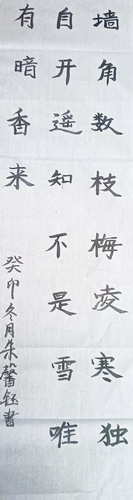 墙角数枝梅凌寒独
自开遥知不是雪唯
有暗香来
癸卯冬月朱馨钰书